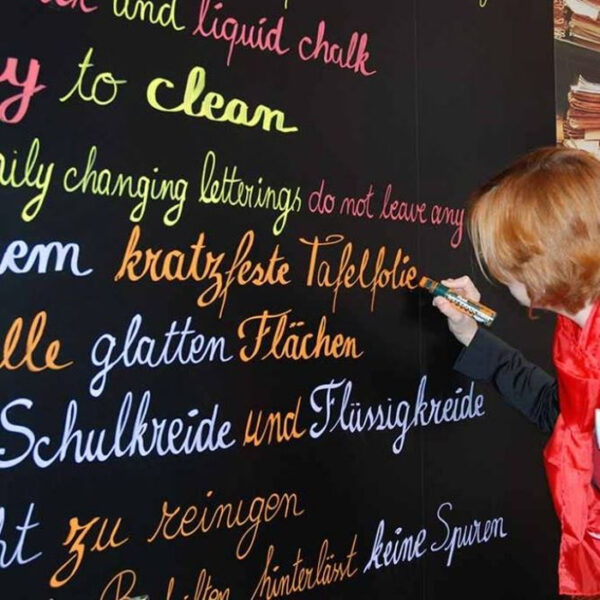 und liquid chalk
to clean
changing letterings do not leave any
kratzfeste Tafelfolie
glatten Flächen
Schulkreide und Flüssigkreide
zu reinigen
hinterlässt keine Spuren